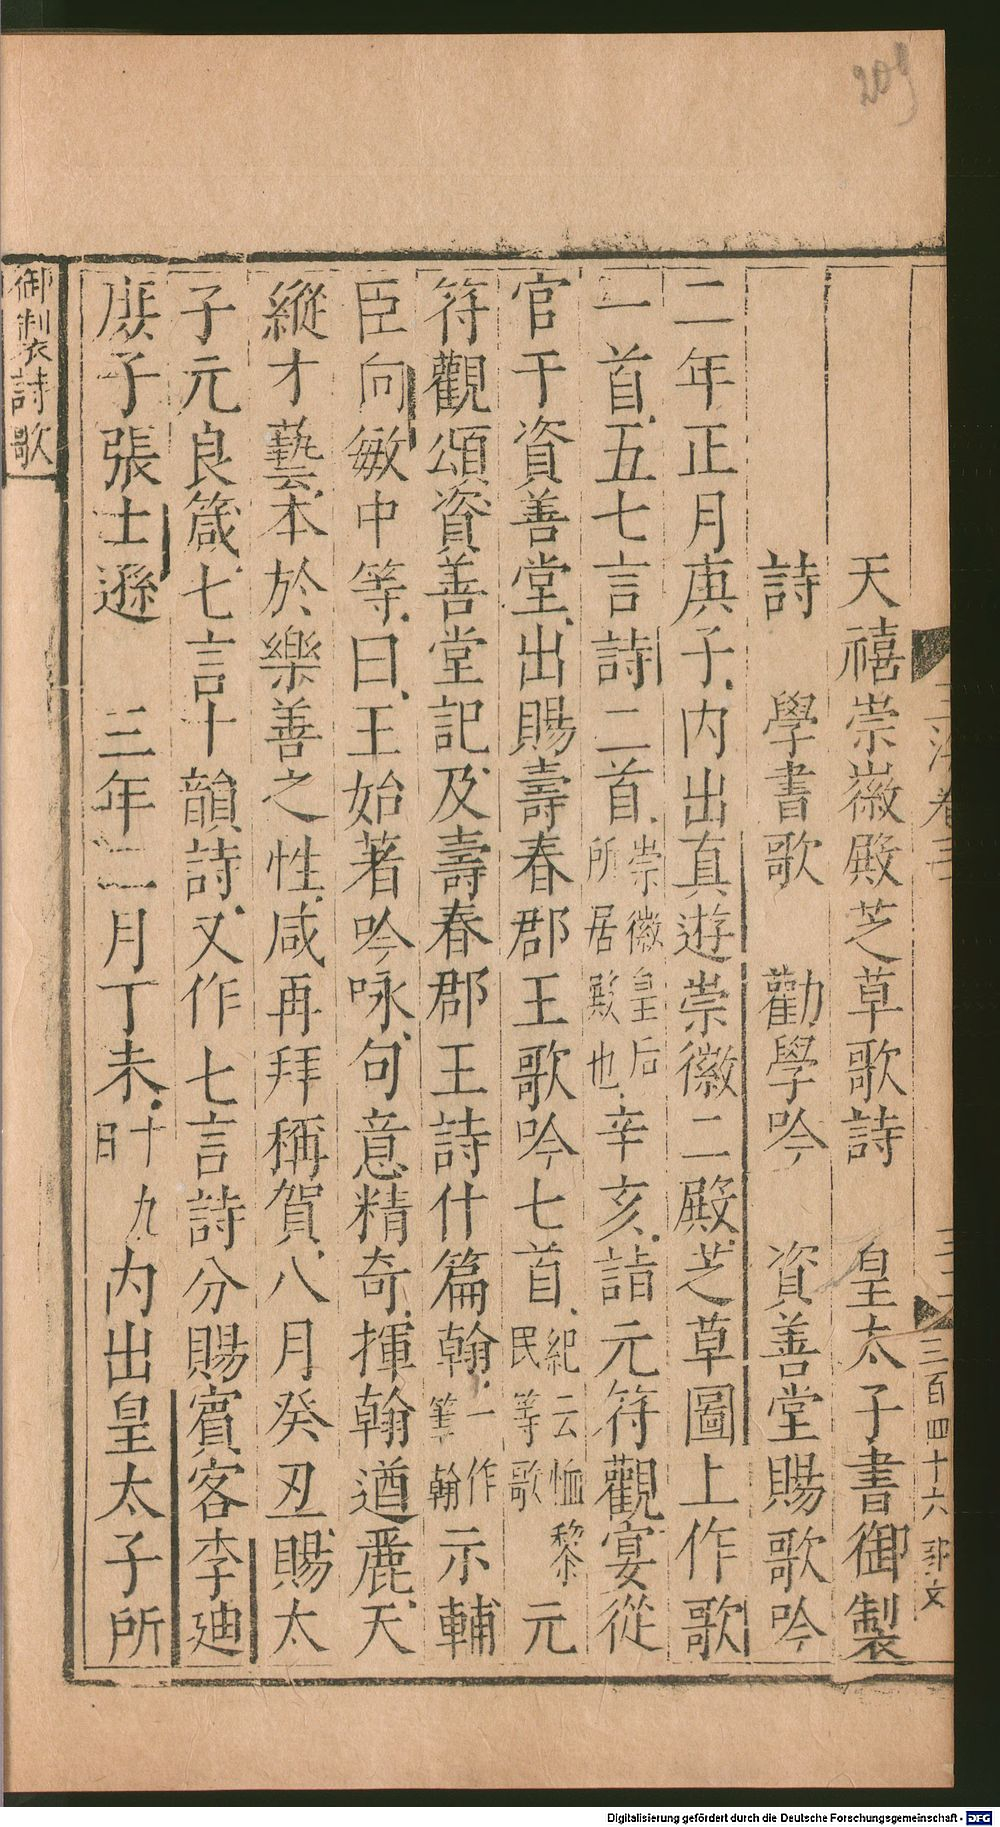 209
三百四十六
天禧崇徽殿芝草歌詩　皇太子書御製
詩　學書歌　勸學吟　資善堂賜歌吟
二年正月庚子内出真遊崇徽二殿芝草圖上作歌
一首五七言詩二首崇徽皇后所居殿也辛亥詣元符觀宴從
官于資善堂出賜壽春郡王歌吟七首紀云恤黎民等歌元
符觀頌資善堂記及壽春郡王詩什篇翰一作筆翰示輔
臣向敏中等曰王始著吟咏句意精奇揮翰遒麗天
縱才藝本於樂善之性咸再拜稱賀八月癸丑賜太
子元良箴七言十韻詩又作七言詩分賜賓客李廸
庶子張士遜　三年二月丁未十九日内出皇太子所
御製詩歌
Digitalisierung gefördert durch die Deutsche Forschungsgemeinschaft - DFG